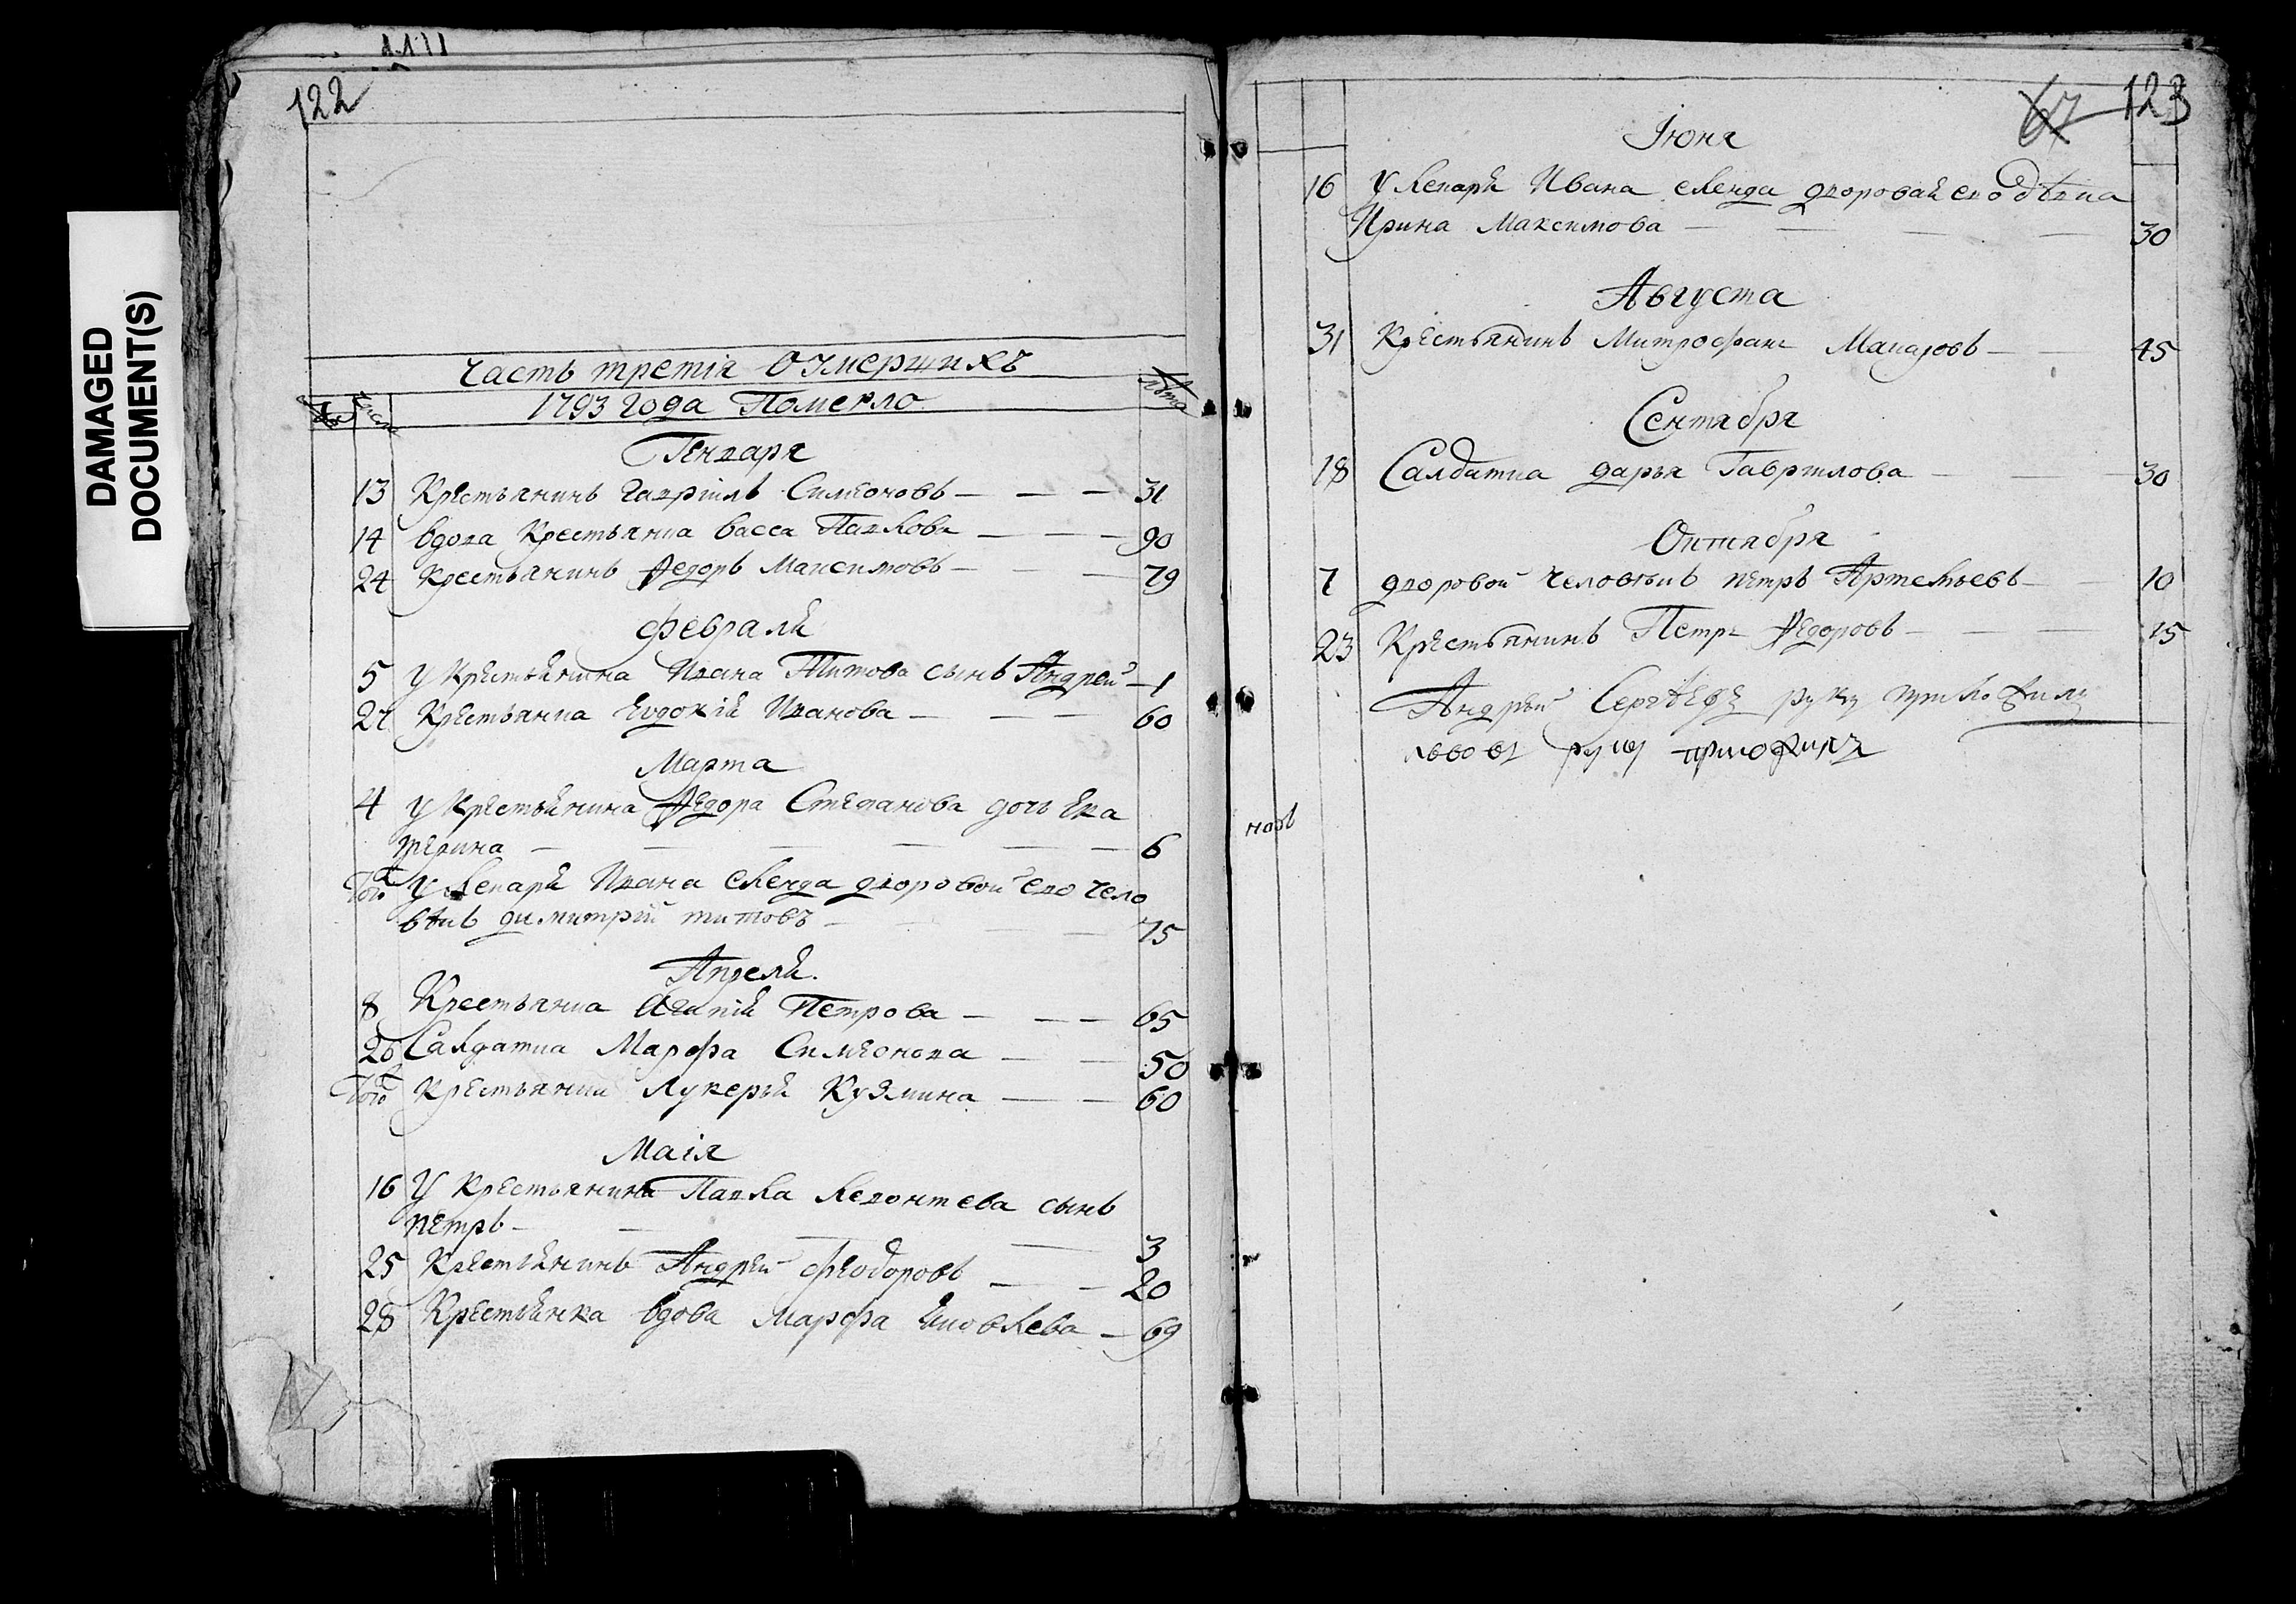 DAMAGED
DOCUMENT(S)
122
Часть третiя О умерших
1793 года Померло
число
лѣта
Генваря
13 Крестьянинъ Гавріилъ Симеоновъ — — — 31
14 вдова Крестьянка Васса Павлова — — — 90
24 Крестьянинъ Федоръ Максимовъ — — — 79
Февраля
5 У Крестьянина Ивана Титова сынъ Андрей — 1
27 Крестьянка Евдокія Иванова — — — 60
Марта
4 У Крестьянина Федора Степанова дочь Ека
терина — — — — — — 6
Того ж У лекаря Ивана дворовой ево чело
вѣкъ димитрій титовъ — — — 75
Апреля
8 Крестьянка Агапія Петрова — — — 65
26 Салдатка Марфа Симеонова — — 50
Того ж Крестьянка Лукерья Кузмина — — 60
Маія
16 У Крестьянина Павла Леонтева сынъ
петръ — — — — 3
25 Крестьянинъ Андрей Феодоровъ — — 20
28 Крестьянка вдова Марфа Яковлева — 69
67 123
Іюня
16 У лекаря Ивана дворовая ево дѣвка
Ирина Максимова — — — — 30
Августа
31 Крестьянинъ Митрофанъ Макаровъ — — 45
Сентября
18 Салдатка дарья Гаврилова — — — 30
Октября
7 дворовой человѣкъ петръ Артемьевъ — — 10
23 Крестьянинъ Петръ Федоровъ — — — 15
Андрей Сергѣевъ руку приложилъ
руку приложилъ